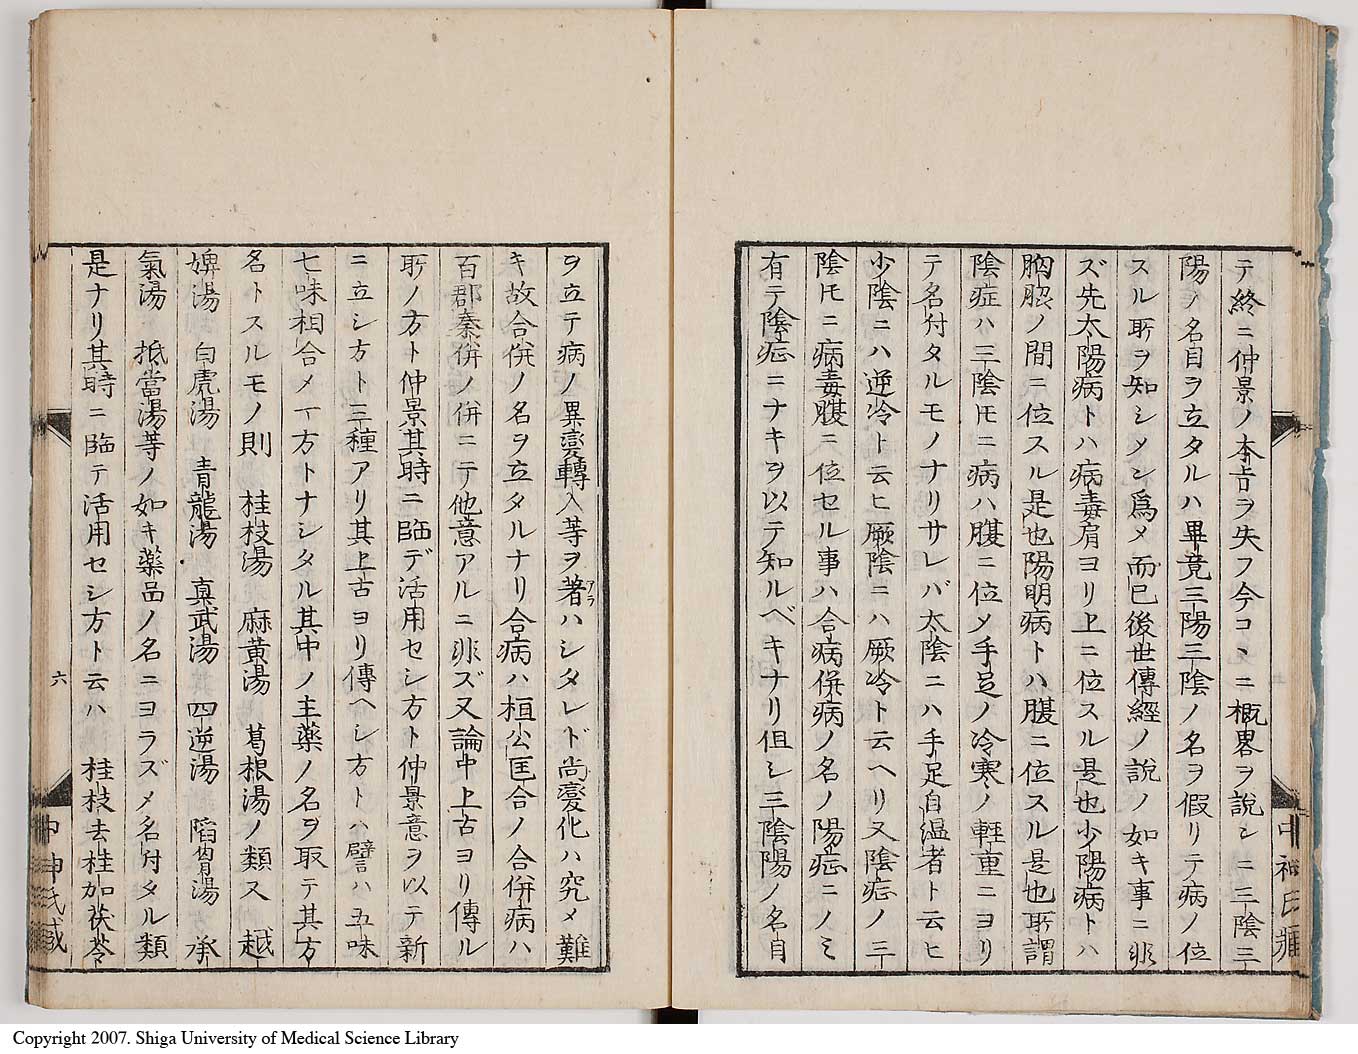 テ終ニ仲景ノ本旨ヲ失フ今コヽニ概畧ヲ説シニ三陰三
陽ノ名目ヲ立タルハ畢竟三陽三陰ノ名ヲ假リテ病ノ位
スル所ヲ知シメン爲メ而已後世傳經ノ説ノ如キ事ニ非
ズ先太陽病トハ病毒肩ヨリ上ニ位スル是也少陽病トハ
胸膈ノ間ニ位スル是也陽明病トハ腹ニ位スル是也所謂
陰症ハ三陰𪜈ニ病ハ腹ニ位メ手足ノ冷寒ノ輕重ニヨリ
テ名付タルモノナリサレバ太陰ニハ手足自温者ト云ヒ
少陰ニハ逆冷ト云ヒ厥陰ニハ厥冷ト云ヘリ又陰症ノ三
陰𪜈ニ病毒腹ニ位セル事ハ合病併病ノ名ノ陽症ニノミ
有テ陰症ニナキヲ以テ知ルベキナリ但シ三陰陽ノ名目
中神氏藏
ヲ立テ病ノ異變轉入等ヲ著ハシタレド尚變化ハ究メ難
アラ
キ故合併ノ名ヲ立タルナリ合病ハ桓公匡合ノ合併病ハ
百郡秦併ノ併ニテ他意アルニ非ズ又論中上古ヨリ傳ル
所ノ方ト仲景其時ニ臨デ活用セシ方ト仲景意ヲ以テ新
ニ立シ方ト三種アリ其上古ヨリ傳ヘシ方トハ譬ハ五味
七味相合メ一方トナシタル其中ノ主薬ノ名ヲ取テ其方
名トスルモノ則 桂枝湯 麻黄湯 葛根湯ノ類又 越
婢湯 白虎湯 青龍湯 真武湯 四逆湯 陷胷湯 承
氣湯 抵當湯等ノ如キ薬品ノ名ニヨラズメ名付タル類
是ナリ其時ニ臨テ活用セシ方ト云ハ 桂枝去桂加茯苓
六
中神氏藏
Copyright 2007. Shiga University of Medical Science Library